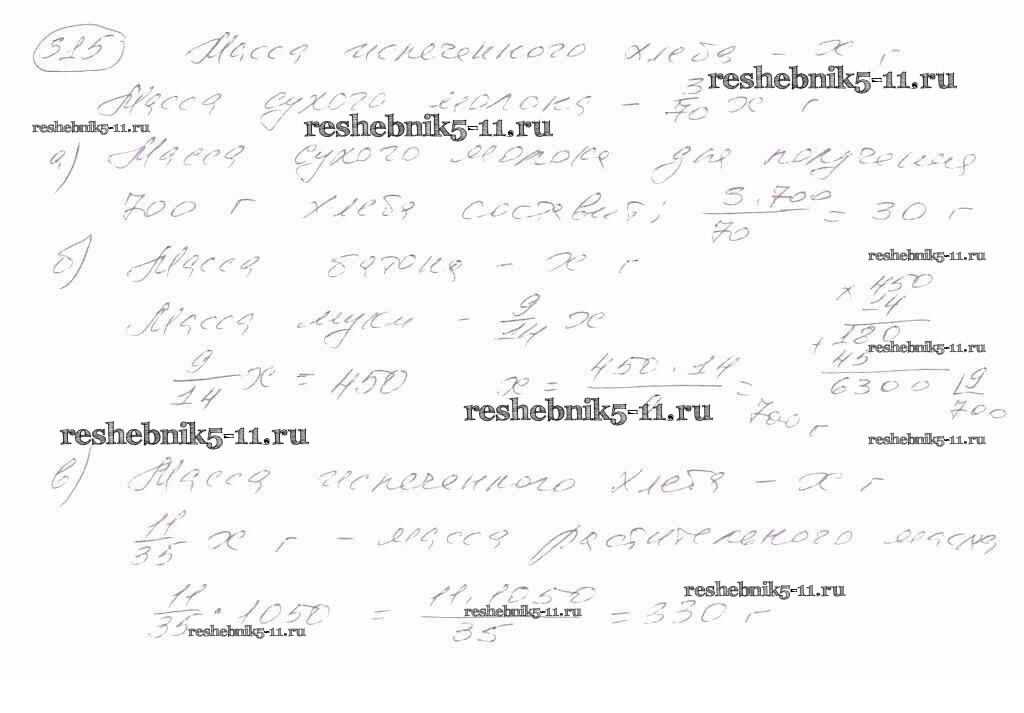 315 Масса испеченного хлеба - x г
reshebnik5-11.ru
Масса сухого молока - 3/70 x г
reshebnik5-11.ru reshebnik5-11.ru
а) Масса сухого молока для получения
700 г хлеба составит: 3·700/70 = 30 г
reshebnik5-11.ru
б) Масса батона - x г
Масса муки - 9/14 x
× 450
14
180
+ 45
6300 9
700
reshebnik5-11.ru
9/14 x = 450 x = 450·14/ = 700 г
reshebnik5-11.ru reshebnik5-11.ru reshebnik5-11.ru
в) Масса испеченного хлеба - x г
11/35 x г - масса растительного масла
reshebnik5-11.ru
11/35 · 1050 = 11·1050/35 = 330 г
reshebnik5-11.ru reshebnik5-11.ru